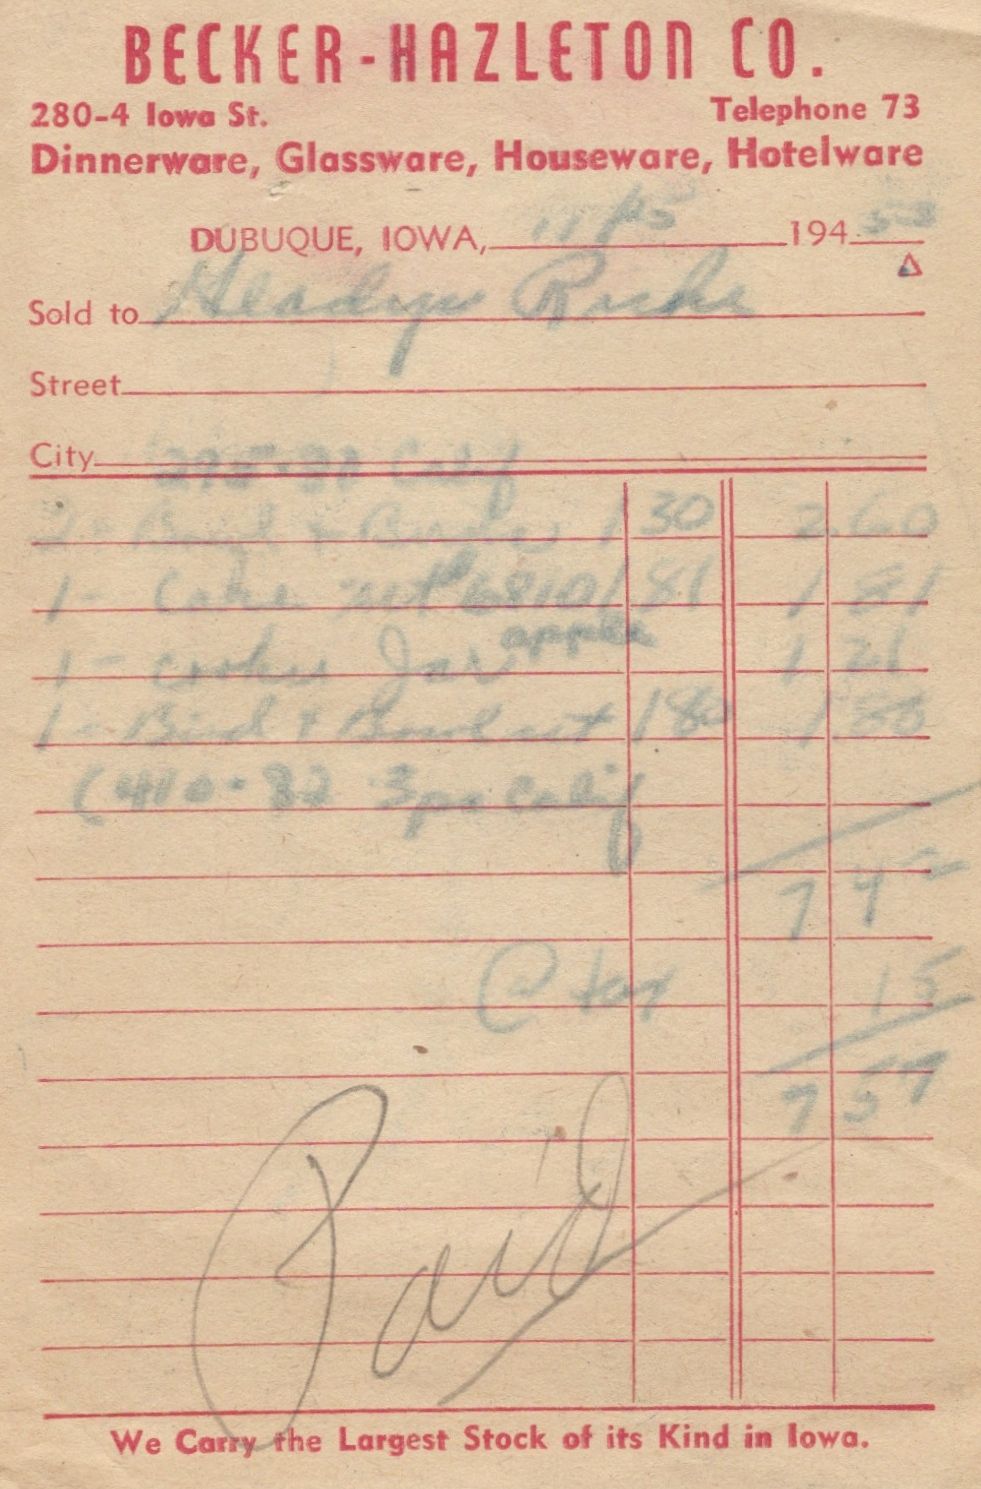 BECKER-HAZLETON CO.
280-4 Iowa St. Telephone 73
Dinnerware, Glassware, Houseware, Hotelware
DUBUQUE, IOWA, 194 53
Sold to Gladys
Street
City
295-82 Calif
2- Bird & 1 30 2.60
1- Cake set 6810 1 81 1 81
1- cookie Jar apple 1 21
1- Bird & Bowl set 1 80 1 80
(410-82 3 pc Calif
7 42
@ tax 15
7 57
Paid
We Carry the Largest Stock of its Kind in Iowa.